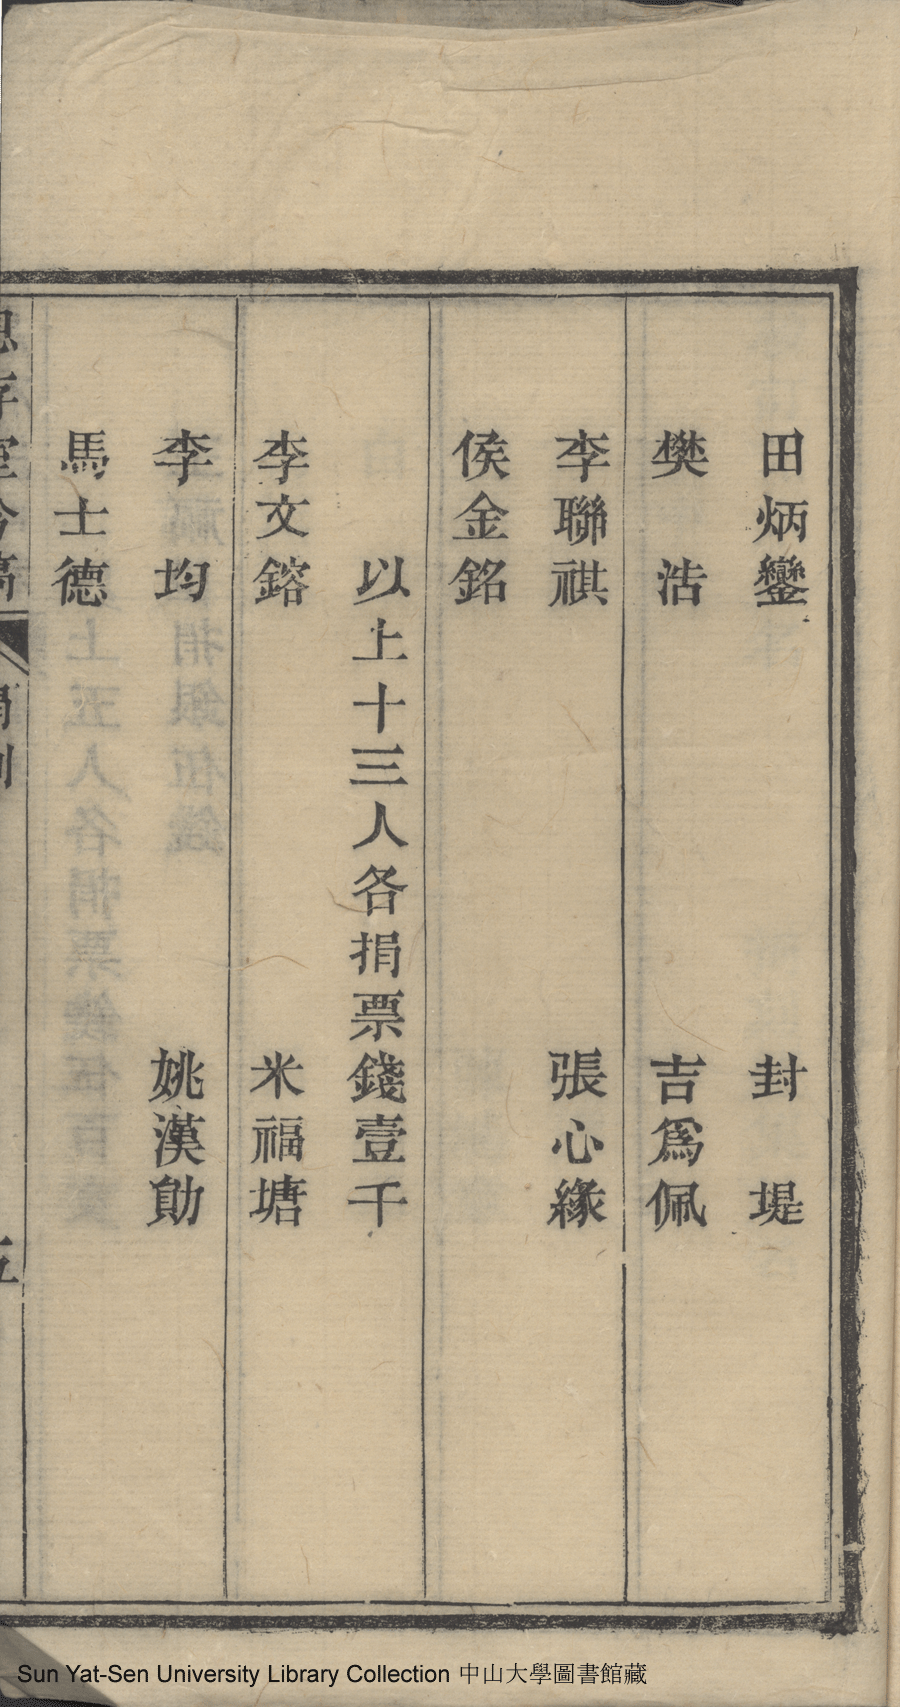 田炳鑾 封堤
樊浩 吉爲佩
李聯祺 張心緣
侯金銘
以上十三人各捐票錢壹千
李文鎔 米福塘
李均 姚漢勛
馬士德
Sun Yat-Sen University Library Collection 中山大學圖書館藏